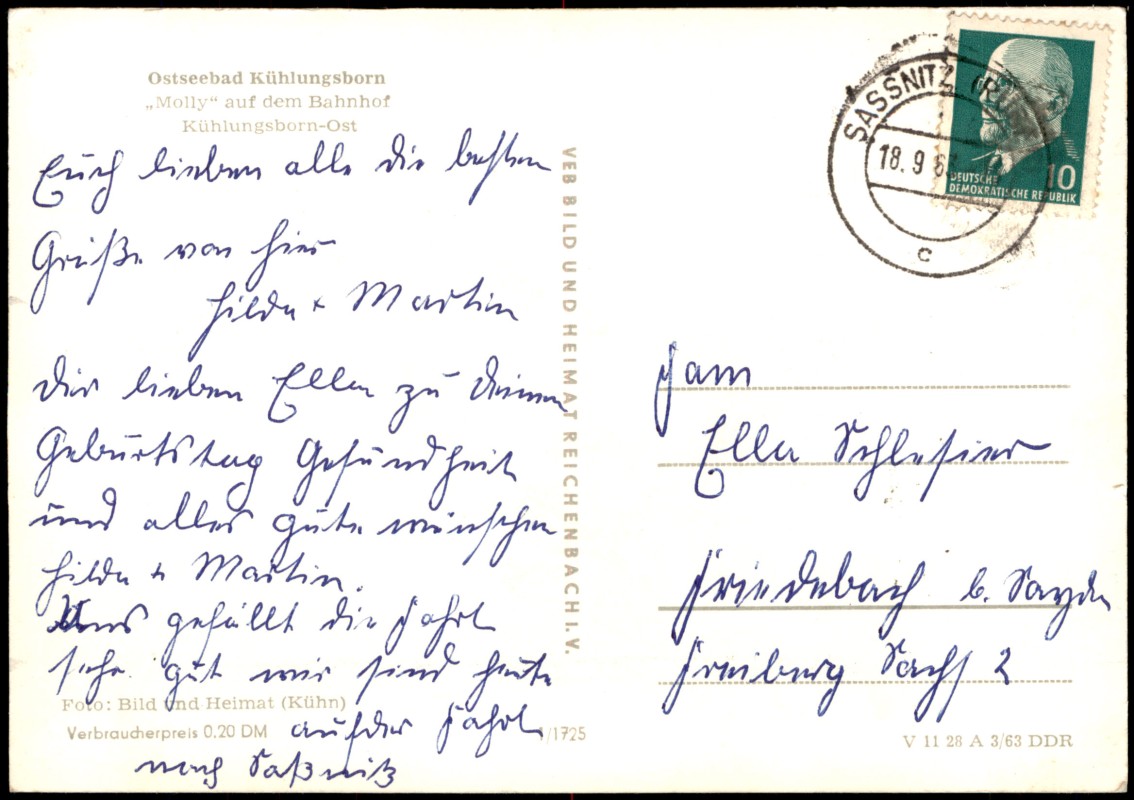 Ostseebad Kühlungsborn
„Molly“ auf dem Bahnhof
Kühlungsborn-Ost
Euch lieben alle die besten
Grüße von hier
Hilde + Martin
Dir lieben Ella zu Deinem
Geburtstag Gesundheit
und alles gute wünschen
Hilde + Martin.
Uns gefällt die Fahrt
sehr gut wir sind heute
auf der Fahrt
nach Saßnitz
Foto: Bild und Heimat (Kühn)
Verbraucherpreis 0,20 DM
1/1725
VEB BILD UND HEIMAT REICHENBACH I. V.
SASSNITZ (RÜ
18. 9 63
c
DEUTSCHE
DEMOKRATISCHE REPUBLIK
10
Fam
Ella Schlesier
Friedebach b. Sayda
Freiberg Sachs 2
V 11 28 A 3/63 DDR